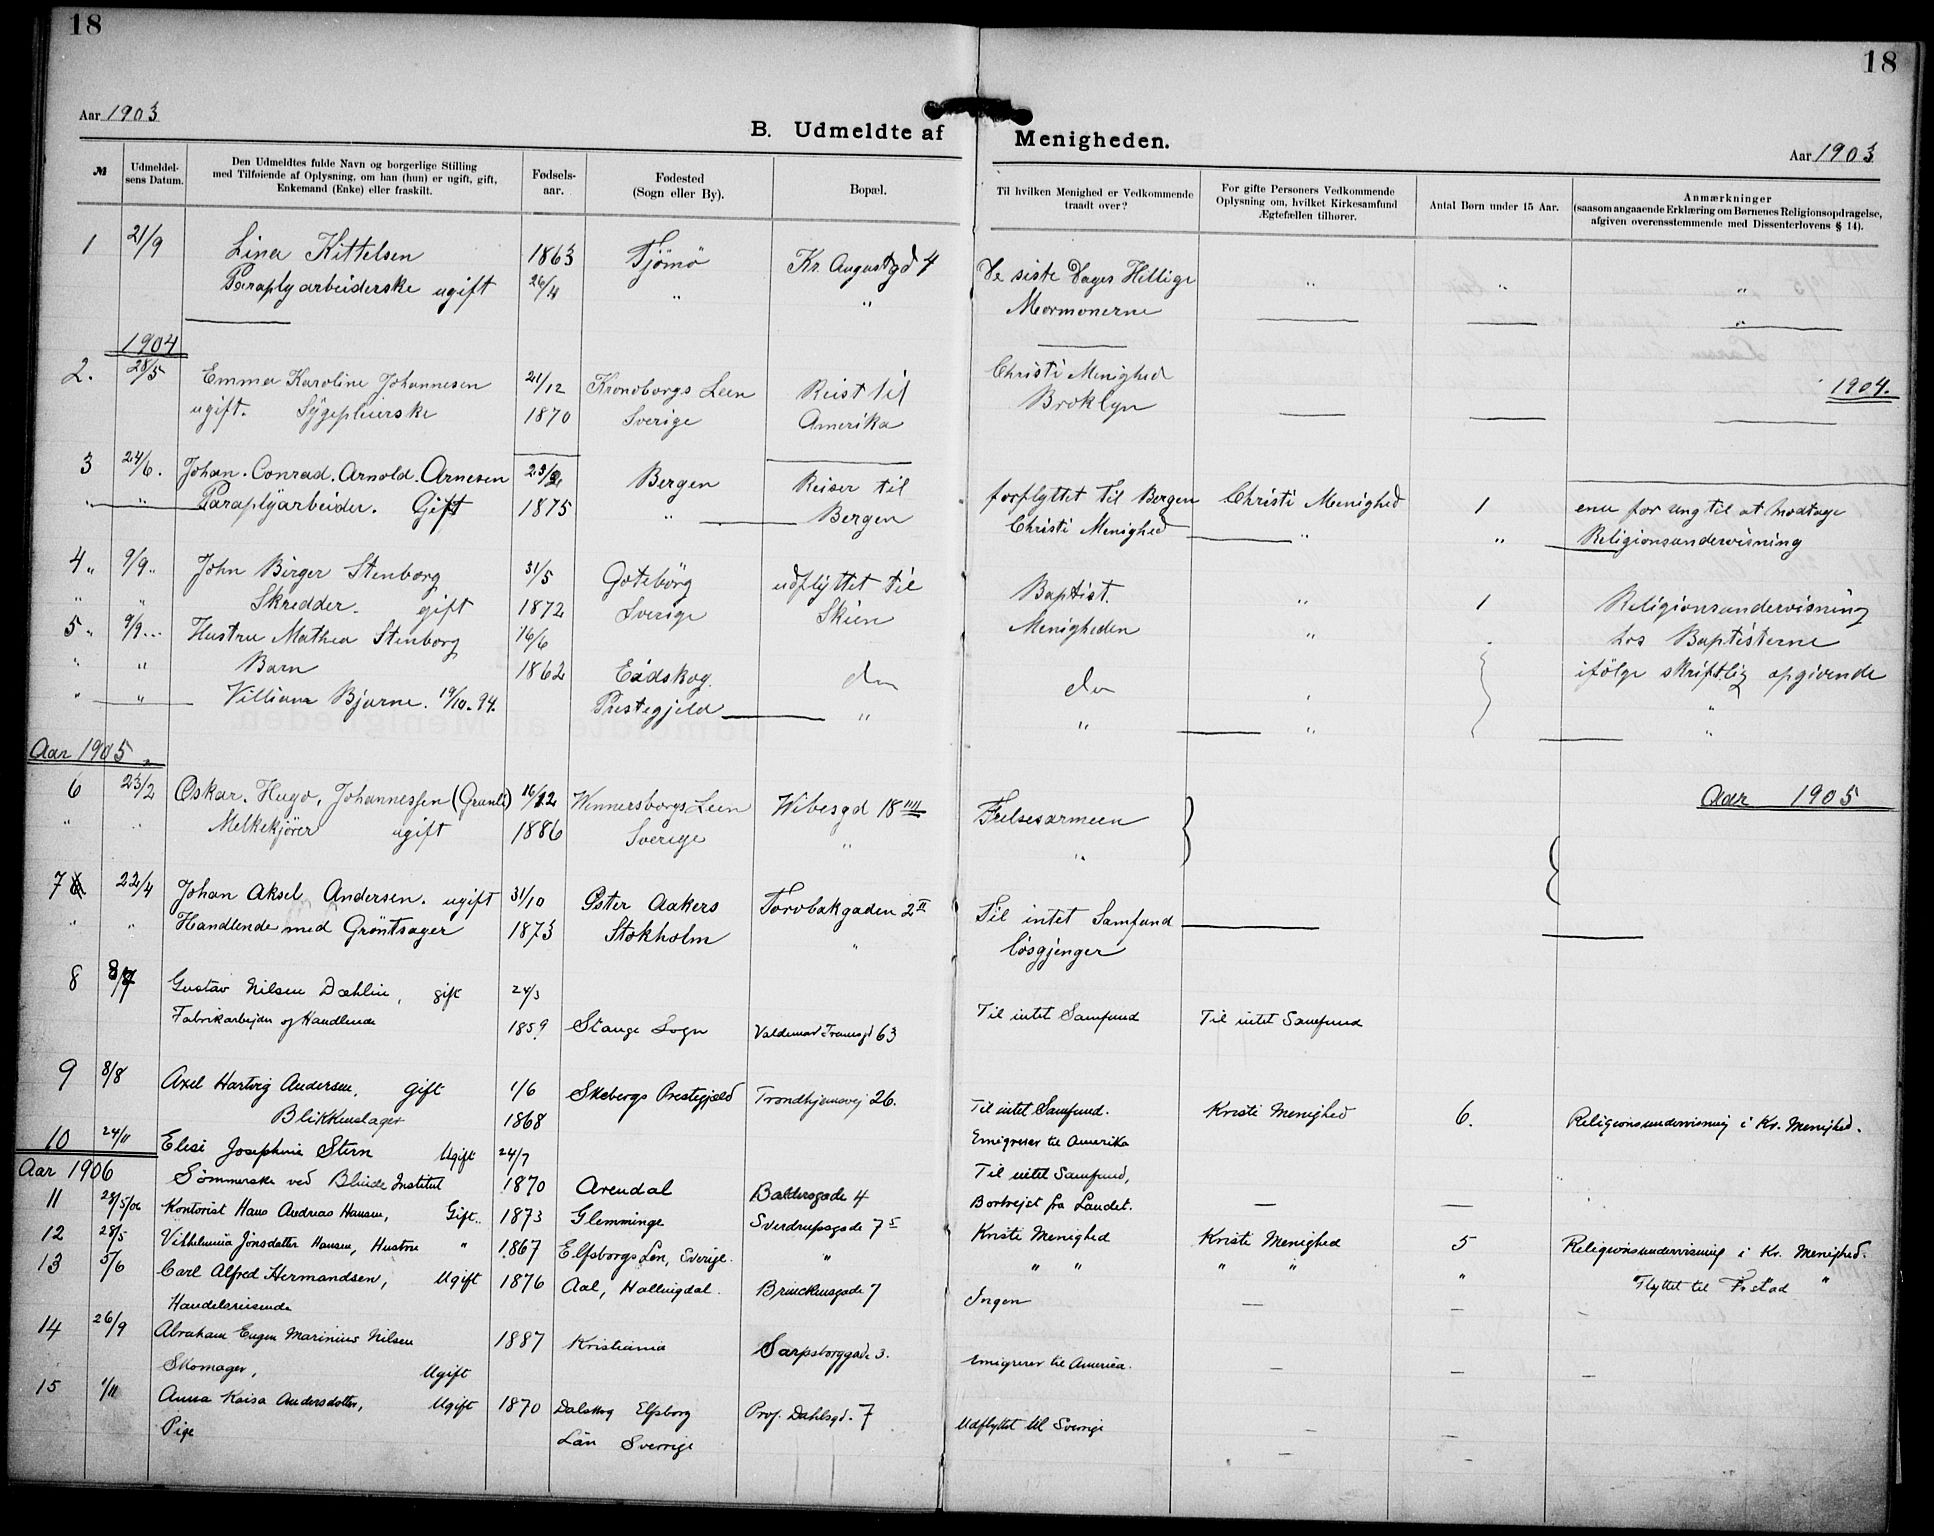 18
18
Aar 1903
B. Udmeldte af Menigheden.
Aar 1903
№
Udmeldelsens Datum.
Den Udmeldtes fulde Navn og borgerlige Stilling
med Tilføiende af Oplysning, om han (hun) er ugift, gift,
Enkemand (Enke) eller fraskilt.
Fødselsaar.
Fødested
(Sogn eller By).
Bopæl.
Til hvilken Menighed er Vedkommende
traadt over?
For gifte Personers Vedkommende
Oplysning om, hvilket Kirkesamfund
Ægtefællen tilhører.
Antal Børn under 15 Aar.
Anmærkninger
(saasom angaaende Erklæring om Børnenes Religionsopdragelse,
afgiven overensstemmende med Dissenterlovens § 14).
1 21/9 Lina Kittelsen 1863 Tjömö Kr. Augustgd 4 De siste Dages Hellige " " "
Paraplyarbeiderske ugift 26/4 " " Mormonerne "
1904
2. 28/5 Emma Karoline Johannesen 21/12 Kronoborgs Leen Reist til Christi Menighed 1904.
ugift. Sÿgepleierske 1870 Sverige Amerika Broklyn
3 24/6. Johan. Conrad. Arnold. Arnesen 23/2 Bergen Reiser til forflyttet til Bergen Christi Menighed 1 enu for ung til at modtage
" " Paraplÿarbeider. Gift 1875 " Bergen Christi Menighed " " Religionsundervisning
4 " 9/9 " John Birger Stenborg 31/5 Gotebörg udflÿttet til Baptist. " 1 Religionsundervisning
" " Skredder. gift 1872 Sverige Skien Menigheden " hos Baptisterne
5 " 9/9 Hustru Mathea Stenborg 16/6
" " Barn 1862 Eidskog. do do ifölge skriftlig opgivende
" " Villiam Bjarne. 19/10.94. Prestegjeld " " " "
Aar 1905
6 23/2 Oskar. Hugo. Johannessen (Granli) 16/12 Wennersborgs Leen Wibesgd 18 IIII Frelsesarmeen Aar 1905
" " Melkekjörer ugift 1886 Sverige " "
7 22/4 Johan Aksel Andersen. ugift 31/10 Öster Aakers Torvbakgaden 2 II Til intet Samfund
" " Handlende med Gröntsager 1873 Stokholm " lösgjenger
8 8/7 Gustav Nilsen Dæhlin, gift 24/3
Fabrikarbejder og Handlende 1859 Stange Sogn Valdemar Thranesgd 63 Til intet Samfund Til intet Samfund
9 8/8 Axel Hartvig Andersen. Gift 1/6 Skebergs Prestegjæld Trondhjemsvej 26. Til intet Samfund. Kristi Menighed 6. Religionsundervisning i Kr. Menighed.
Blikkenslager 1868 Emigrerer til Amerika
10 24/11 Elisi Josephine Stern Ugift 24/7 Til intet Samfund,
Aar 1906 Sömmerske ved Blinde Institut 1870 Arendal Baldersgade 4 Bortrejst fra Landet. — —
11 28/5/06 Kontorist Hans Andreas Hansen, Gift. 1873 Glemminge Sverdrupsgade 7 5 Kristi Menighed Kristi Menighed 5 Religionsundervisning i Kr. Menighed.
12 28/5 Vilhelmina Jönsdatter Hansen, Hustru " 1867 Elfsborgs Len, Sverige. " " " " " " Flyttet til F.stad "
13 5/6 Carl Alfred Hermandsen, Ugift 1876 Aal, Hallingdal. Brinckensgade 7 Ingen — —
Handelsreisende
14 26/9 Abraham Eugen Marinius Nilsen 1887 Kristiania Sarpsborggade 3. Emigrerer til America. — — —
Skomager, Ugift
15 1/11 Anna Kaisa Andersdotter, Ugift 1870 Dalskog Elfsborg Prof. Dahlsgd. 7 Udflyttet til Sverrige — —
Pige Län Sverrige — —